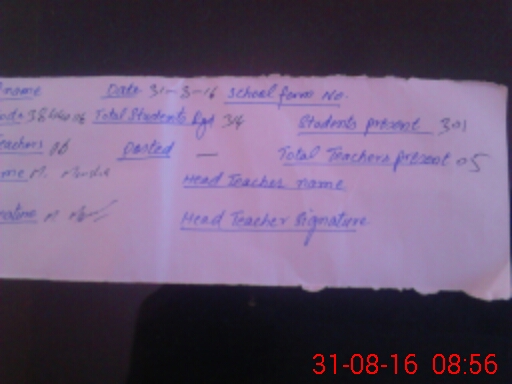 name Date 31-8-16 School form No.
Total Students 34 Students present 301
Teachers 06 Posted — Total Teachers present 05
Head Teacher name
Head Teacher Signature
31-08-16 08:56